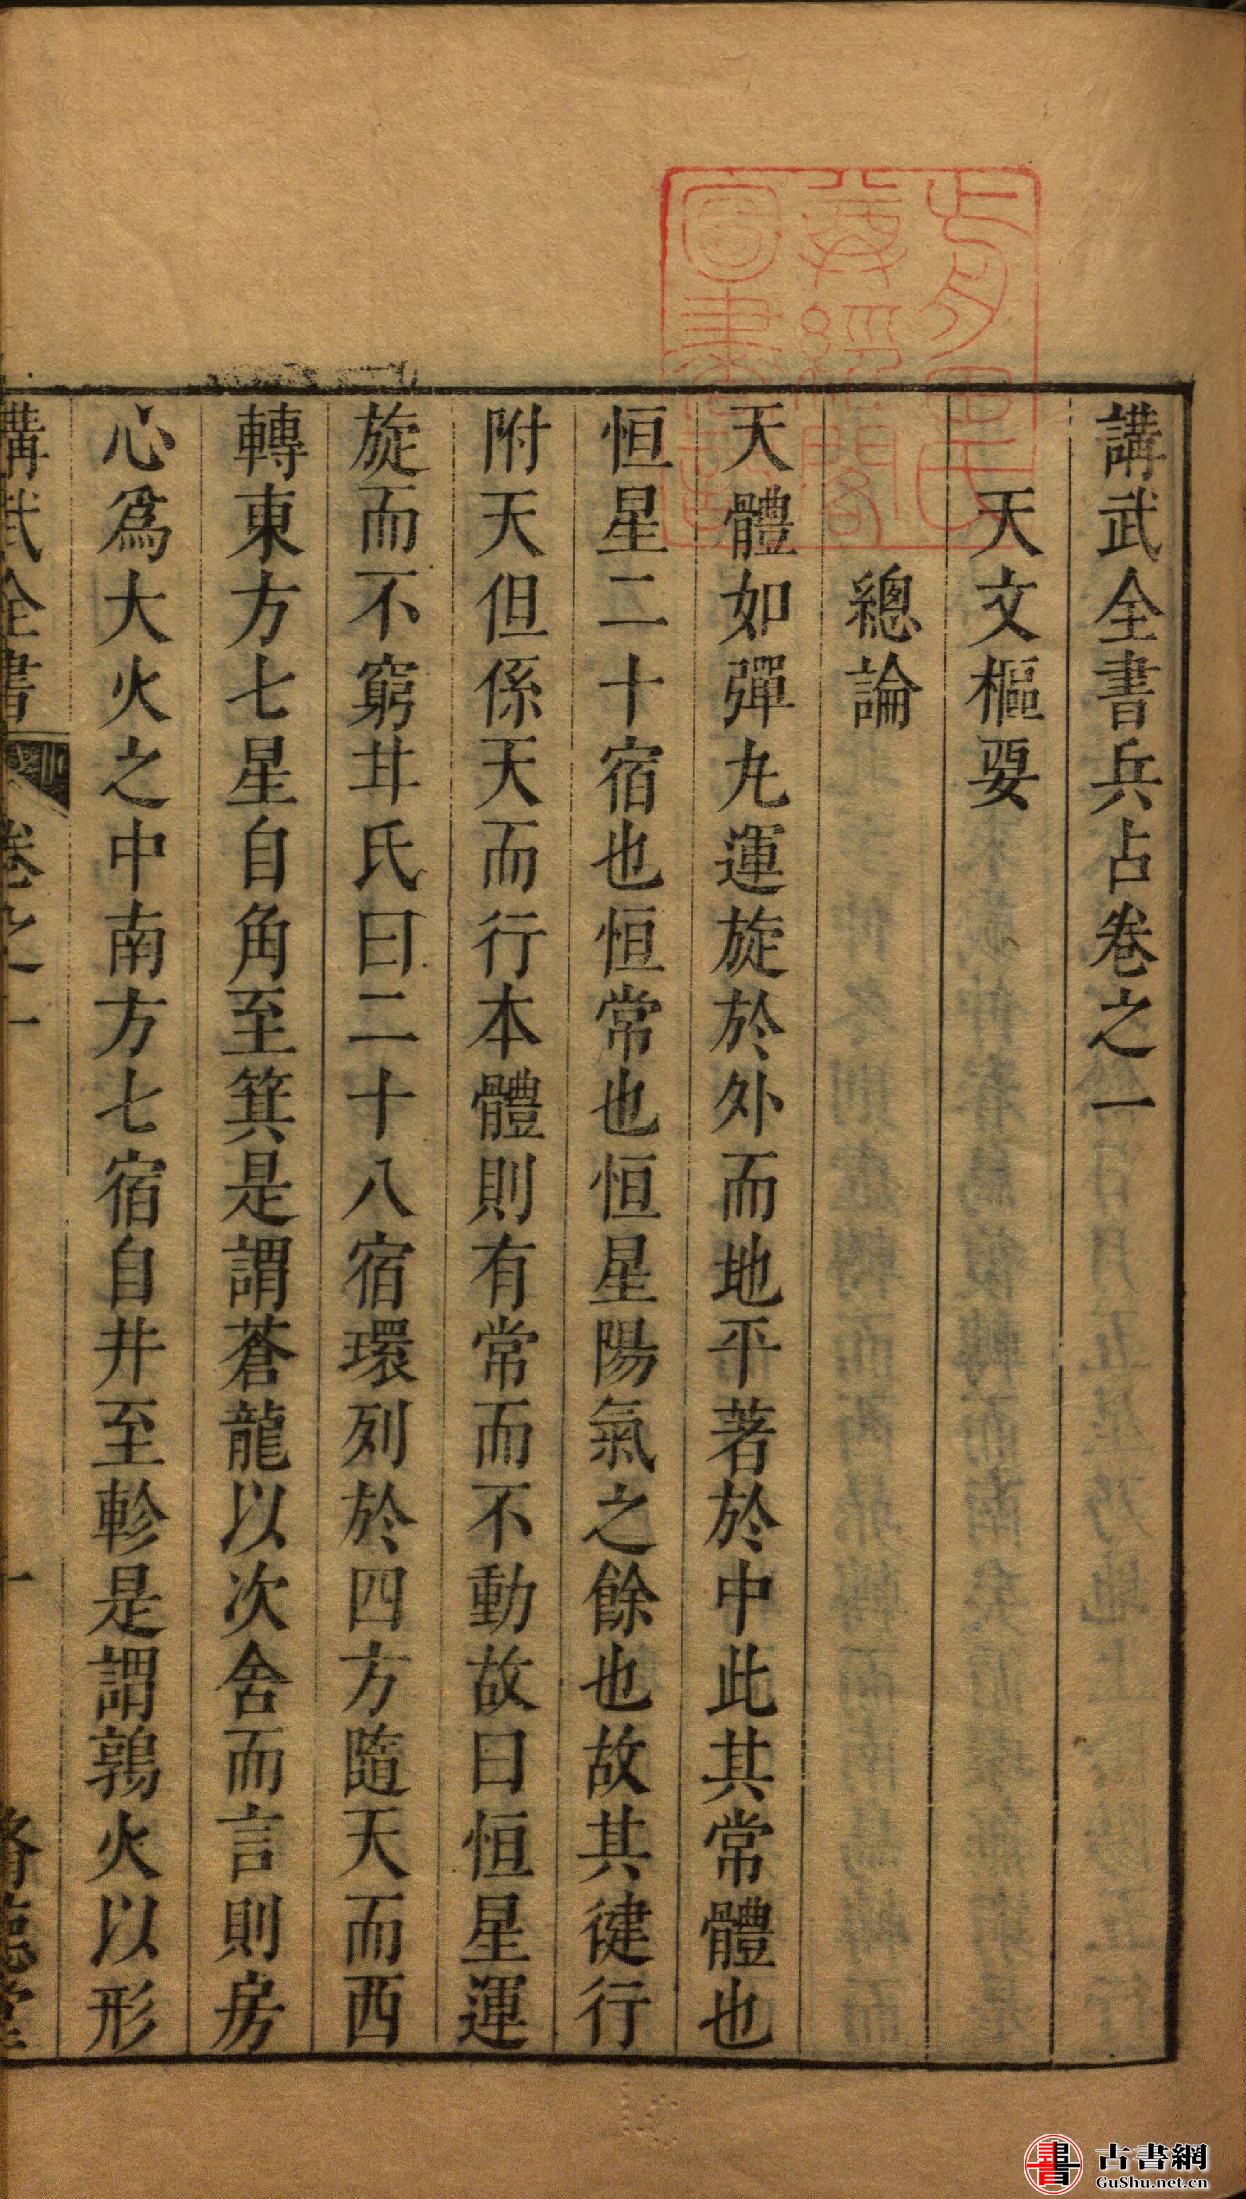 講武全書兵占卷之一
天文樞要
總論
天體如彈丸運旋於外而地平著於中此其常體也
恒星二十宿也恒常也恒星陽氣之餘也故其健行
附天但係天而行本體則有常而不動故曰恒星運
旋而不窮甘氏曰二十八宿環列於四方隨天而西
轉東方七星自角至箕是謂蒼龍以次舍而言則房
心爲大火之中南方七宿自井至軫是謂鶉火以形
講武全書 卷之一 一
古書網
GuShu.net.cn